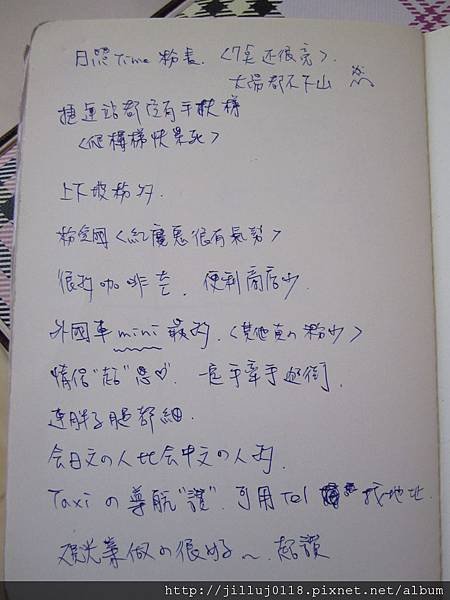 日照Time粉長. <7点还很亮>.
太陽都不下山
捷運站都沒有手扶梯
<爬樓梯快累死>
上下坡粉多.
粉愛國<紅魔鬼很有氣勢>
很多咖啡店. 便利商店少.
外國車 mini 最多. <其他真の粉少>
情侶"超"恩♡. 一直手牽手逛街.
連胖子腿都細.
会日文の人比会中文の人多.
Taxi の導航"讚". 可用Tel 找地址.
观光業做の很好～. 超讚
http://jilluj0118.pixnet.net/album